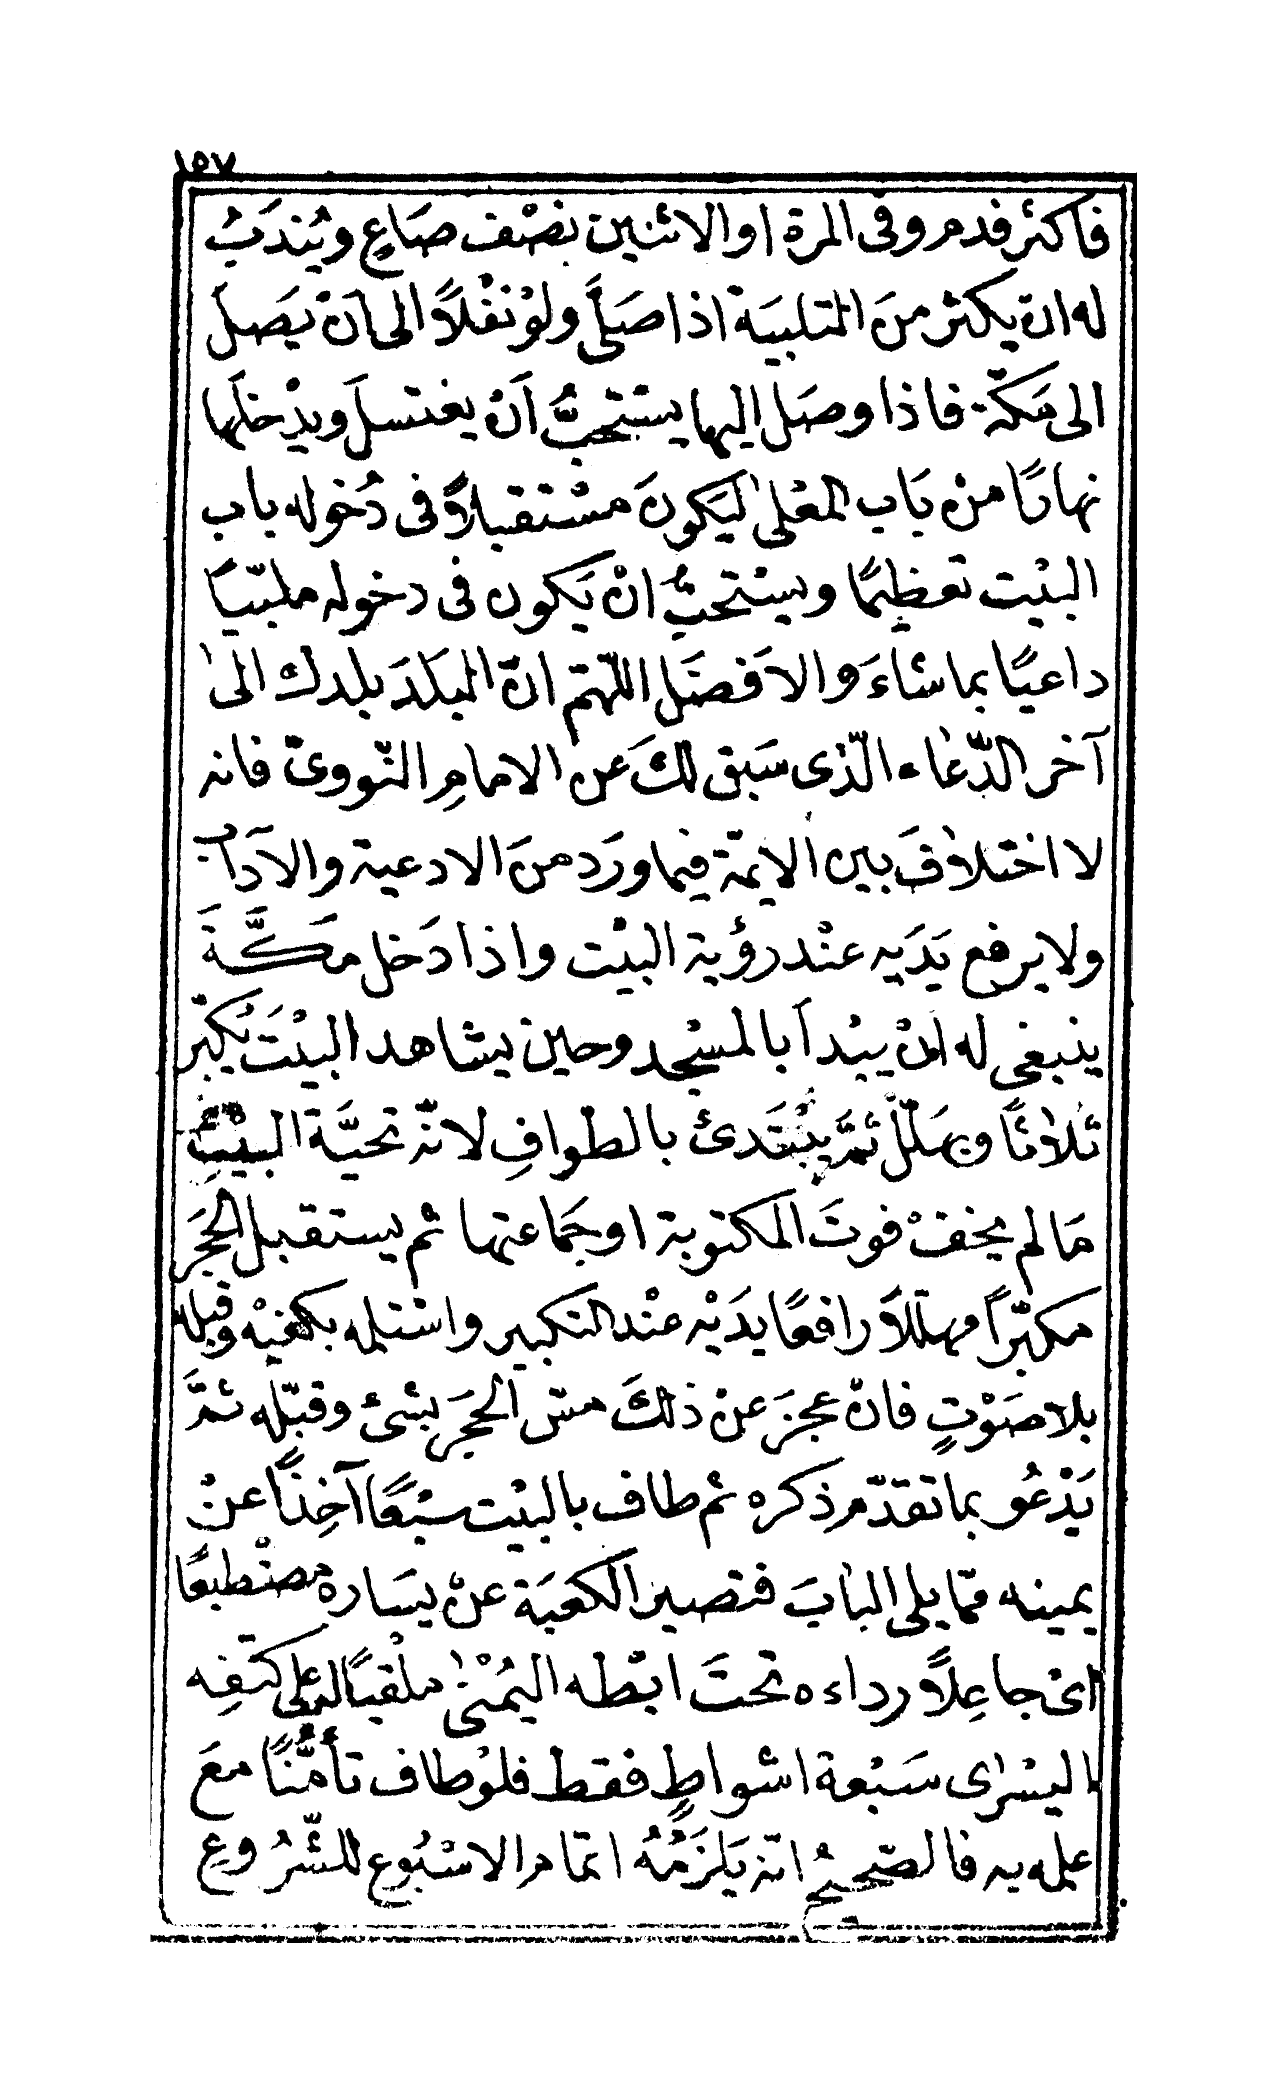 ١٥٧
فاكثر فدم وفى المرة او الاثنين نصْف صَاعٍ ويُندَبُ
له ان يكثر منَ التلبيَة اذا صَلَّى ولوْ نفْلاً الى اَنْ يَصلَ
الى مَكّة فاذا وصَل اليها يسْتحبُّ اَنْ يغتسلَ ويدْخلَها
نهارًا منْ بَاب المعْلىٰ ليَكونَ مسْتقبلاً فى دُخوله باب
البيْت تعْظيمًا ويسْتحبُّ انْ يَكون فى دخوله ملبّيًا
داعيًا بما شاءَ والاَفضَل اللّهمّ انّ البَلدَ بلدك الىٰ
آخر الدّعاء الّذى سَبق لكَ عن الامامِ النّووىّ فانه
لا اختلافَ بين الايمّة فيما ورَد منَ الادعية والآدابِ
ولا يرفع يَدَيه عنْد رؤية البيْت واذا دَخل مَكَّةَ
ينبغى له انْ يبْدأ بالمسْجد وحينَ يشاهد البيْتَ يُكبّر
ثلاثًا ويهَلّل ثمَّ يبْتَدئ بالطوافِ لانّه تحيَّة البيْتِ
مَا لم يخفْ فوتَ المكتوبة او جَماعتها ثم يستقبل الحَجَر
مكبّراً مهلّلاً رافعًا يدَيْه عنْد التكبير واسْتلمه بكفيْه وقبله
بلا صَوْتٍ فانْ عجزَ عنْ ذلكَ مسّ الحجَر بشئ وقبّله ثمَّ
يَدْعُو بما تقدّم ذكره ثم طاف بالبيْت سبْعًا آخِذًا عنْ
يمينه ممّا يلى البابَ فتصير الكعبَة عنْ يسَاره مصْطبعًا
اىْ جاعِلاً رداءه تحتَ ابْطه اليُمْنىٰ ملْقيًا له على كتفِه
اليسْرٰى سَبْعة اشواطٍ فقط فلوْ طاف تأمُّنًا معَ
عمله به فالصّحيحُ انّه يَلزَمُهُ اتمام الاسْبُوع للشّرُوعِ